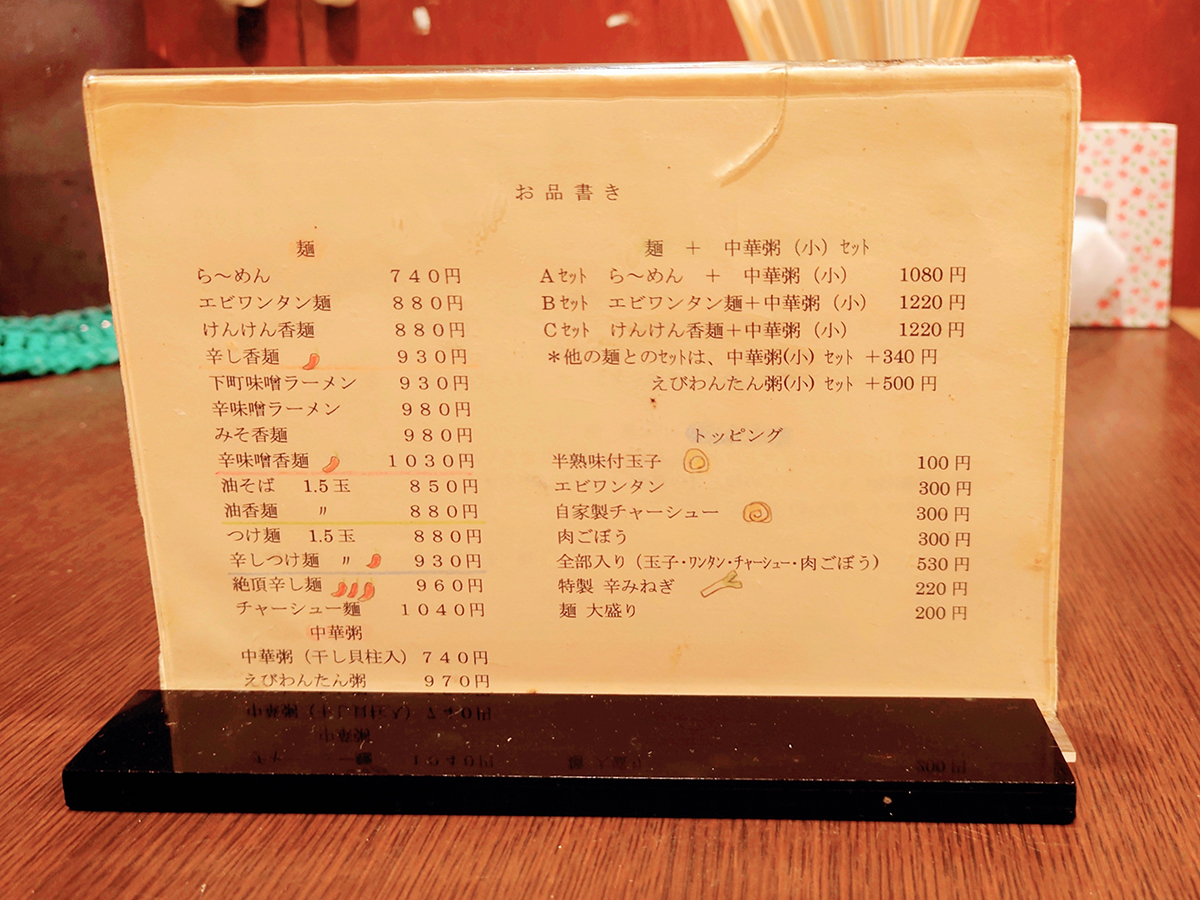 お品書き
麺
ら～めん 740円
エビワンタン麺 880円
けんけん香麺 880円
辛し香麺 930円
下町味噌ラーメン 930円
辛味噌ラーメン 980円
みそ香麺 980円
辛味噌香麺 1030円
油そば 1.5玉 850円
油香麺 〃 880円
つけ麺 1.5玉 880円
辛しつけ麺 〃 930円
絶頂辛し麺 960円
チャーシュー麺 1040円
中華粥
中華粥（干し貝柱入） 740円
えびわんたん粥 970円
麺 ＋ 中華粥（小）ｾｯﾄ
Aｾｯﾄ ら～めん ＋ 中華粥（小） 1080円
Bｾｯﾄ エビワンタン麺＋中華粥（小） 1220円
Cｾｯﾄ けんけん香麺＋中華粥（小） 1220円
＊他の麺とのｾｯﾄは、中華粥(小) ｾｯﾄ ＋340円
えびわんたん粥(小) ｾｯﾄ ＋500円
トッピング
半熟味付玉子 100円
エビワンタン 300円
自家製チャーシュー 300円
肉ごぼう 300円
全部入り（玉子・ﾜﾝﾀﾝ・ﾁｬｰｼｭｰ・肉ごぼう） 530円
特製 辛みねぎ 220円
麺 大盛り 200円